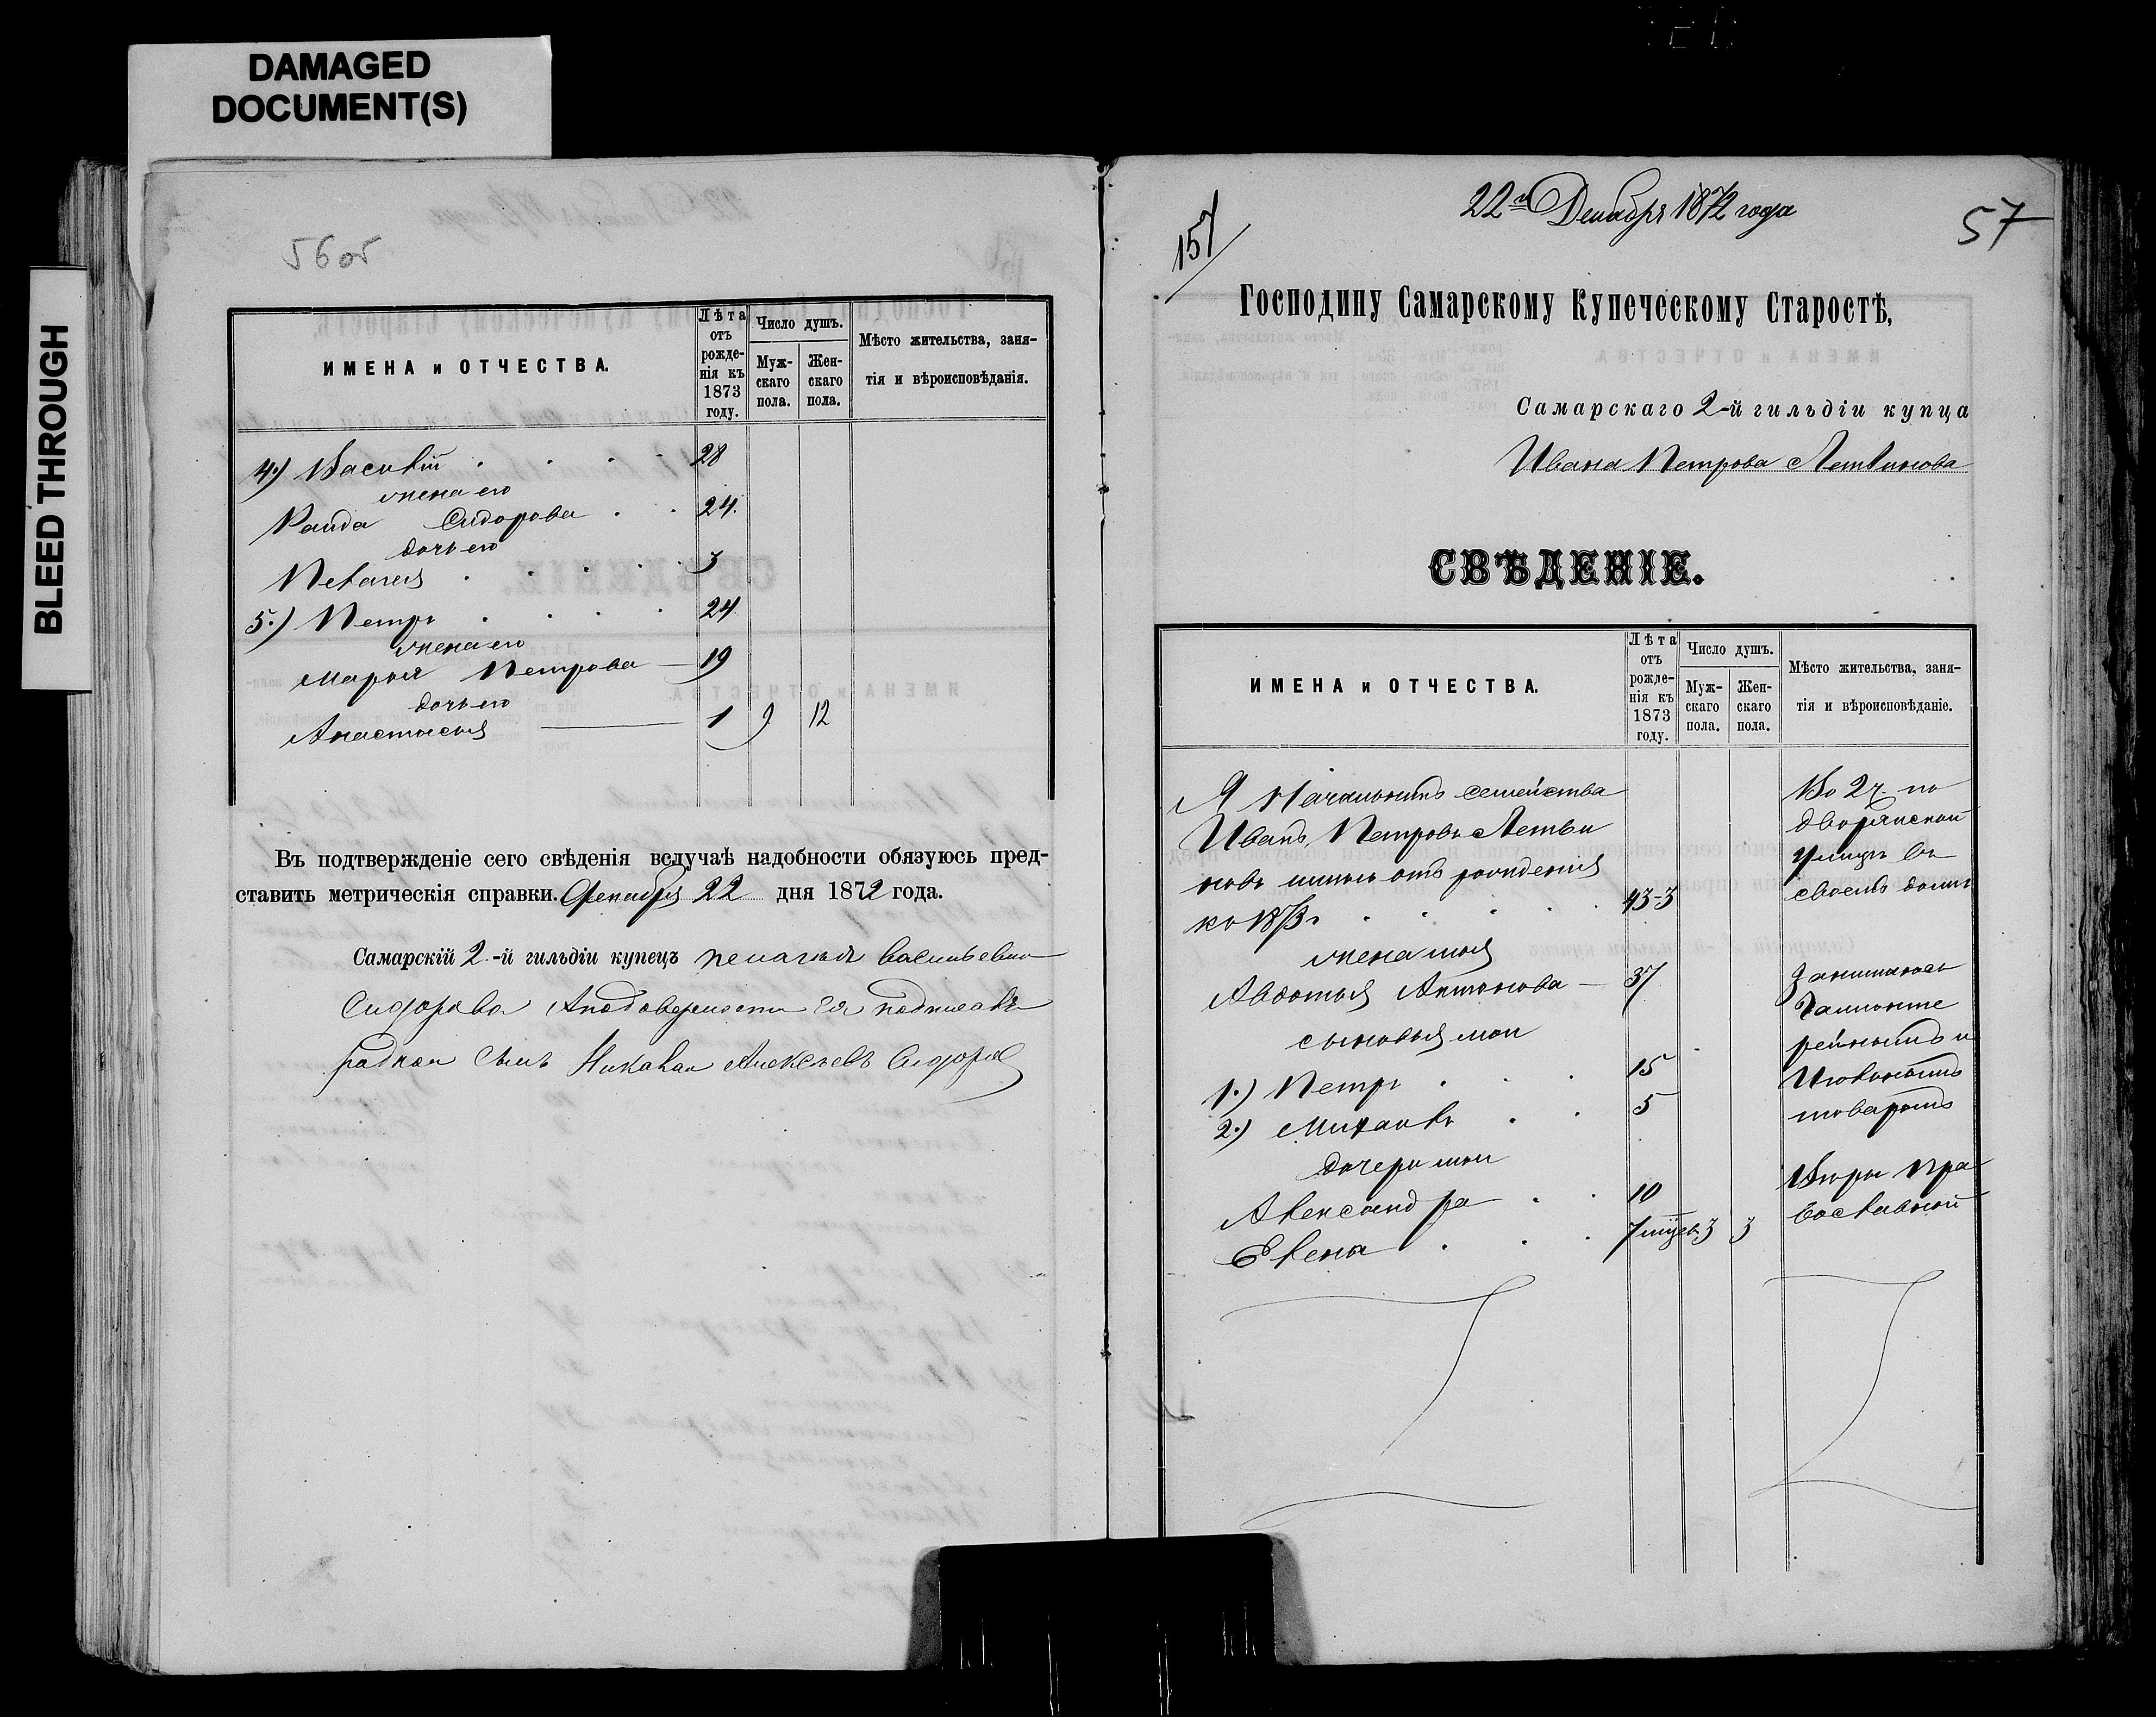 DAMAGED
DOCUMENT(S)
BLEED THROUGH
56 об
ИМЕНА и ОТЧЕСТВА.
Лѣта отъ рожденія къ 1873 году.
Число душъ.
Мужскаго пола.
Женскаго пола.
Мѣсто жительства, занятія и вѣроисповѣданія.
4.) Василій 28
жена его
Раида Сидорова 24.
дочь его
Пелагея 3
5.) Петръ 24
жена его
Марья Петрова — 19
дочь его
Анастасья — 1 9 12
Въ подтвержденіе сего свѣденія вслучаѣ надобности обязуюсь пред-
ставить метрическія справки. Декабря 22 дня 1872 года.
Самарскій 2-й гильдіи купецъ Пелагея Васильевна
Сидорова Аподоверености Ея подписавъ
радной Сынъ Николай Алексѣевъ Сидоровъ
157
22го Декабря 1872 года
57
Господину Самарскому Купеческому Старостѣ,
Самарскаго 2-й гильдіи купца
Ивана Петрова Летвинова
СВѢДЕНІЕ.
ИМЕНА и ОТЧЕСТВА.
Лѣта отъ рожденія къ 1873 году.
Число душъ.
Мужскаго пола.
Женскаго пола.
Мѣсто жительства, занятія и вѣроисповѣданіе.
Я Начальникъ семейства
Иванъ Петровъ Летви
новъ имѣю отъ рожденія
ко 1873 г. 43-3
жена моя
Авдотья Антонова — 37
сыновья мои
1.) Петръ 15
2.) Михаилъ 5
дочери мои
Александра 10
Елена 7 мцев. 3 3
Во 2 ч. по
дворянской
улицѣ въ
своемъ домѣ
Занимаюсь
Галанте
рейнымъ и
Игольнымъ
товаромъ
Вѣры Пра
вославной